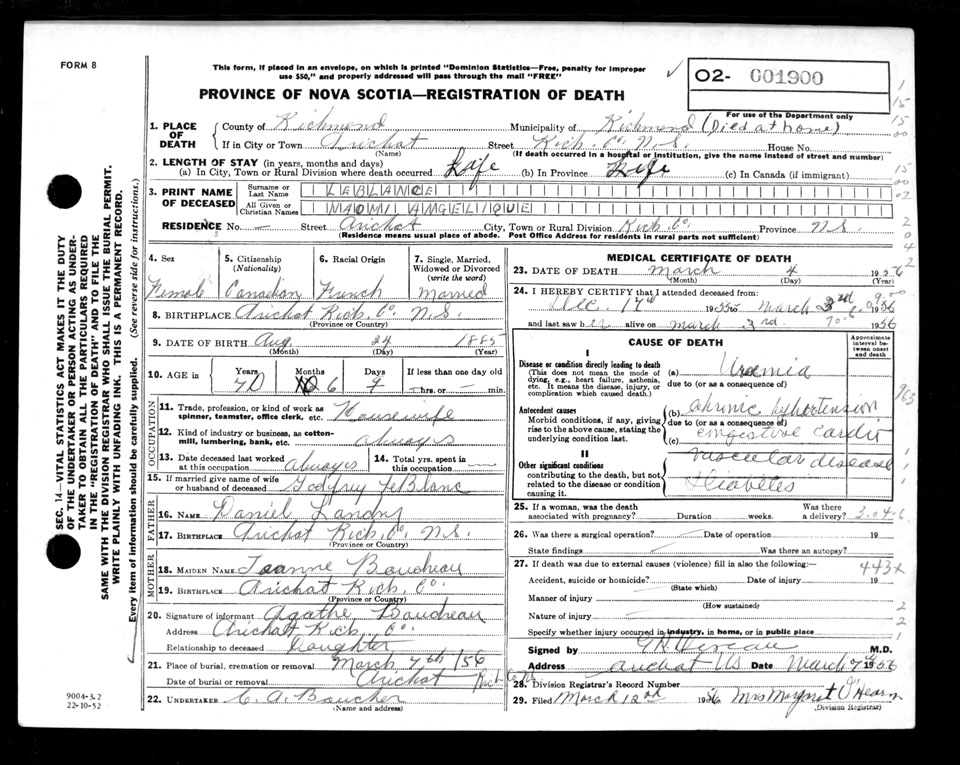 FORM 8
This form, if placed in an envelope, on which is printed "Dominion Statistics—Free, penalty for improper
use $50," and properly addressed will pass through the mail "FREE"
✓ O2- 001900
PROVINCE OF NOVA SCOTIA—REGISTRATION OF DEATH
For use of the Department only
1. PLACE OF DEATH
County of Richmond Municipality of Richmond (Died at home)
If in City or Town Arichat Street Rich. Co. N.S. House No.
(Name) (If death occurred in a hospital or institution, give the name instead of street and number)
2. LENGTH OF STAY (in years, months and days)
(a) In City, Town or Rural Division where death occurred Life (b) In Province Life (c) In Canada (if immigrant)
3. PRINT NAME OF DECEASED
Surname or Last Name LEBLANC
All Given or Christian Names NAOMI ANGELIQUE
RESIDENCE No. — Street Arichat City, Town or Rural Division Rich. Co. Province N.S.
(Residence means usual place of abode. Post Office Address for residents in rural parts not sufficient)
4. Sex
Female
5. Citizenship (Nationality)
Canadian
6. Racial Origin
French
7. Single, Married, Widowed or Divorced (write the word)
Married
8. BIRTHPLACE Arichat Rich. Co. N.S.
(Province or Country)
9. DATE OF BIRTH Aug. 24 1885
(Month) (Day) (Year)
10. AGE in Years Months Days If less than one day old
70 6 9 hrs. or — min.
OCCUPATION
11. Trade, profession, or kind of work as spinner, teamster, office clerk, etc. Housewife
12. Kind of industry or business, as cotton-mill, lumbering, bank, etc. always
13. Date deceased last worked at this occupation always
14. Total yrs. spent in this occupation —
15. If married give name of wife or husband of deceased Godfrey LeBlanc
FATHER
16. NAME Daniel Landry
17. BIRTHPLACE Arichat Rich. Co. N.S.
(Province or Country)
MOTHER
18. MAIDEN NAME Joanne Boudreau
19. BIRTHPLACE Arichat Rich. Co.
(Province or Country)
20. Signature of informant Agathe Boudreau
Address Arichat Rich. Co.
Relationship to deceased Daughter
21. Place of burial, cremation or removal March 7th /56
Date of burial or removal Arichat Rich Co NS
22. UNDERTAKER C. A. Boucher
(Name and address)
MEDICAL CERTIFICATE OF DEATH
23. DATE OF DEATH March 4 1956
(Month) (Day) (Year)
24. I HEREBY CERTIFY that I attended deceased from:
Dec. 17th 1955 to March 3rd 1956
and last saw her alive on March 3rd 1956
CAUSE OF DEATH
Approximate interval between onset and death
I
Disease or condition directly leading to death
(This does not mean the mode of dying, e.g., heart failure, asthenia, etc. It means the disease, injury, or complication which caused death.)
(a) Uremia
due to (or as a consequence of)
Antecedent causes
Morbid conditions, if any, giving rise to the above cause, stating the underlying condition last.
(b) chronic hypertension
due to (or as a consequence of)
(c) congestive cardio
vascular disease
II
Other significant conditions
contributing to the death, but not related to the disease or condition causing it.
Diabetes
25. If a woman, was the death associated with pregnancy? Duration weeks. Was there a delivery?
26. Was there a surgical operation? Date of operation 19
State findings Was there an autopsy?
27. If death was due to external causes (violence) fill in also the following:—
443X
Accident, suicide or homicide? Date of injury 19
(State which)
Manner of injury
(How sustained)
Nature of injury
Specify whether injury occurred in industry, in home, or in public place
Signed by M.D.
Address Arichat NS Date March 7 1956
28. Division Registrar's Record Number
29. Filed March 12nd 1956 Mrs Margaret O'Hearn
(Division Registrar)
SEC. 14—VITAL STATISTICS ACT MAKES IT THE DUTY
OF THE UNDERTAKER OR PERSON ACTING AS UNDER-
TAKER TO OBTAIN ALL THE PARTICULARS REQUIRED
IN THE "REGISTRATION OF DEATH" AND TO FILE THE
SAME WITH THE DIVISION REGISTRAR WHO SHALL ISSUE THE BURIAL PERMIT.
WRITE PLAINLY WITH UNFADING INK. THIS IS A PERMANENT RECORD.
Every item of information should be carefully supplied. (See reverse side for instructions.)
9004-3.2
22-10-52